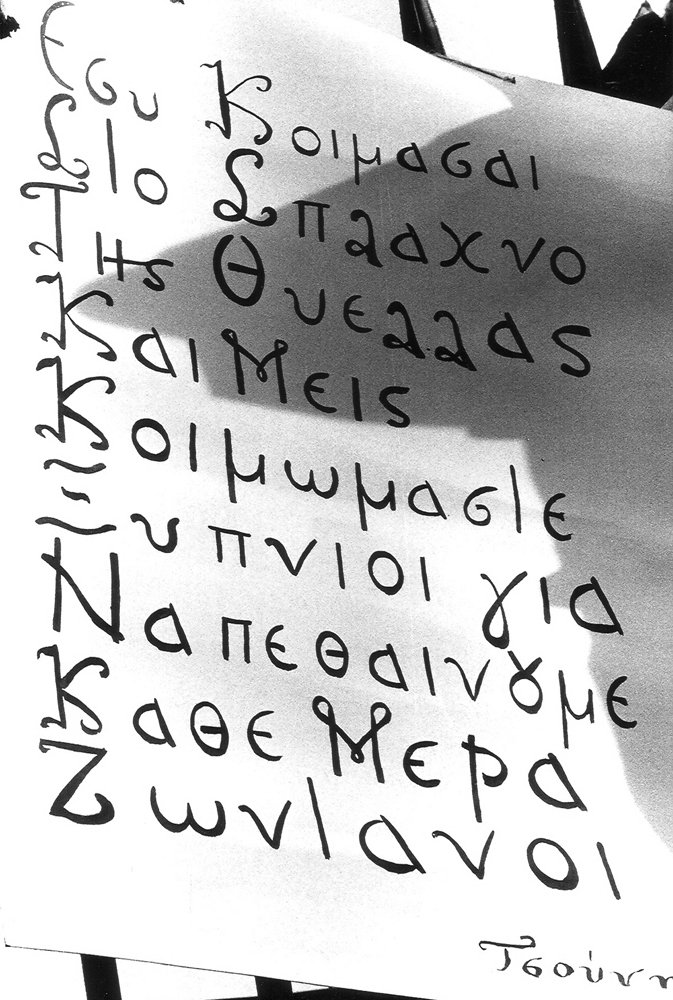 Εσυ Κοιμασαι
Στο Σπλαχνο
Της Θυελλας
Και Μεις
Κοιμωμαστε
Ξυπνιοι για
Να πεθαινȣμε
Καθε Μερα
Ζωντανοι
Τσούνη